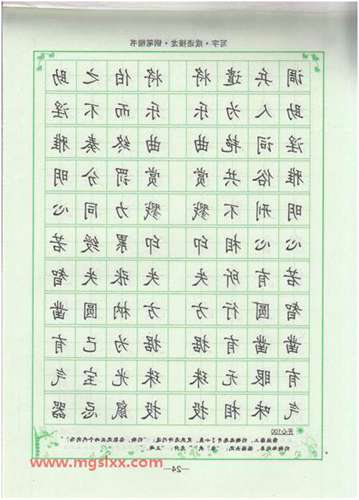 写字·成语接龙·钢笔楷书
调兵遣将将伯之助
助人为乐乐而不淫
淫词艳曲曲终奏雅
雅俗共赏赏罚分明
明刑不戮戮力同心
心心相印印累绶若
若有所失失张失智
智圆行方方枘圆凿
凿凿有据据为己有
有眼无珠珠光宝气
气味相投投鼠忌器
开心100
—24—
www.mgslxx.com